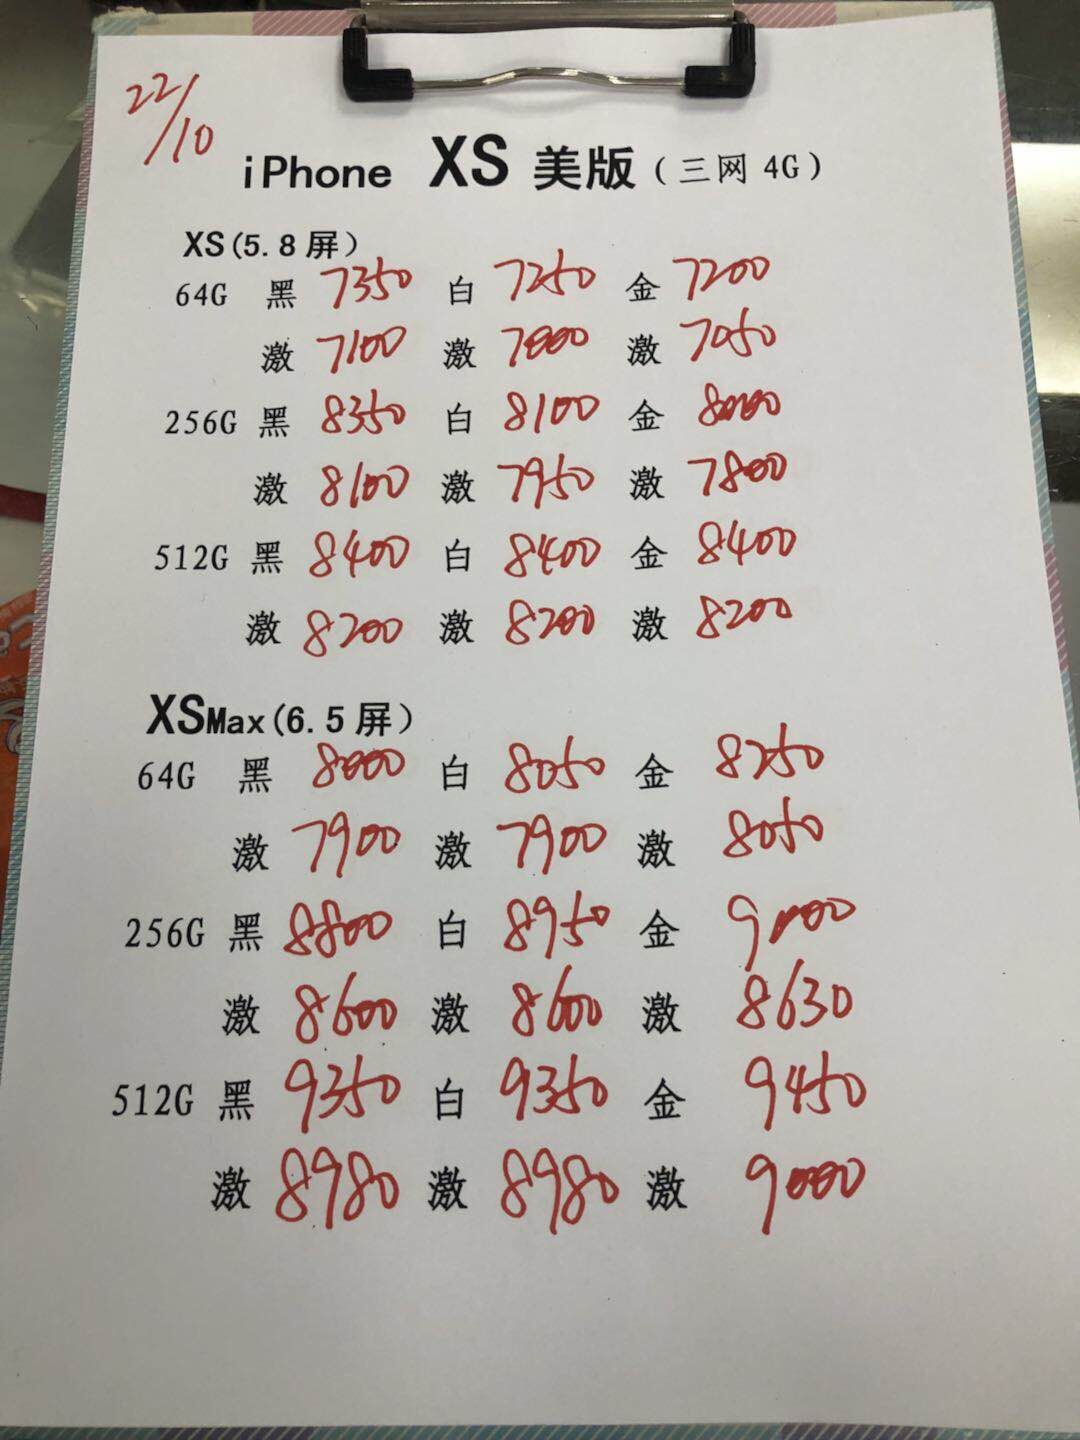 22/10
iPhone XS 美版(三网 4G)
XS(5.8屏)
64G 黑 7350 白 7250 金 7200
激 7100 激 7000 激 7050
256G 黑 8350 白 8100 金 8000
激 8100 激 7950 激 7800
512G 黑 8400 白 8400 金 8400
激 8200 激 8200 激 8200
XSMax(6.5屏)
64G 黑 8000 白 8050 金 8250
激 7900 激 7900 激 8050
256G 黑 8800 白 8950 金 9000
激 8600 激 8600 激 8630
512G 黑 9350 白 9350 金 9450
激 8980 激 8980 激 9000